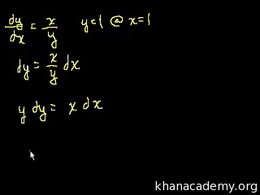 dy/dx = x/y    y=1 @ x=1
dy = x/y dx
y dy = x dx
khanacademy.org